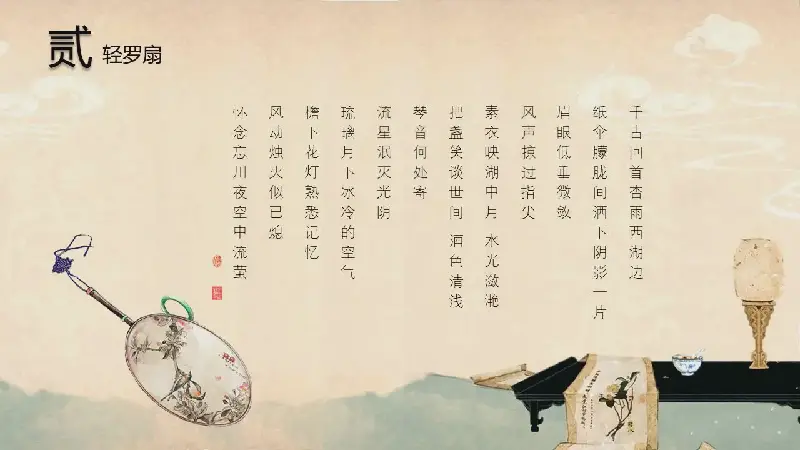 贰
轻罗扇
千古回首杏雨西湖边
纸伞朦胧间洒下阴影一片
眉眼低垂微敛
风声掠过指尖
素衣映湖中月 水光潋滟
把盏笑谈世间 酒色清浅
琴音何处寄
流星泯灭光阴
琉璃月下冰冷的空气
檐下花灯熟悉记忆
风动烛火似已熄
怀念忘川夜空中流萤